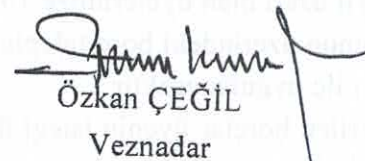 Özkan ÇEĞİL
Veznadar